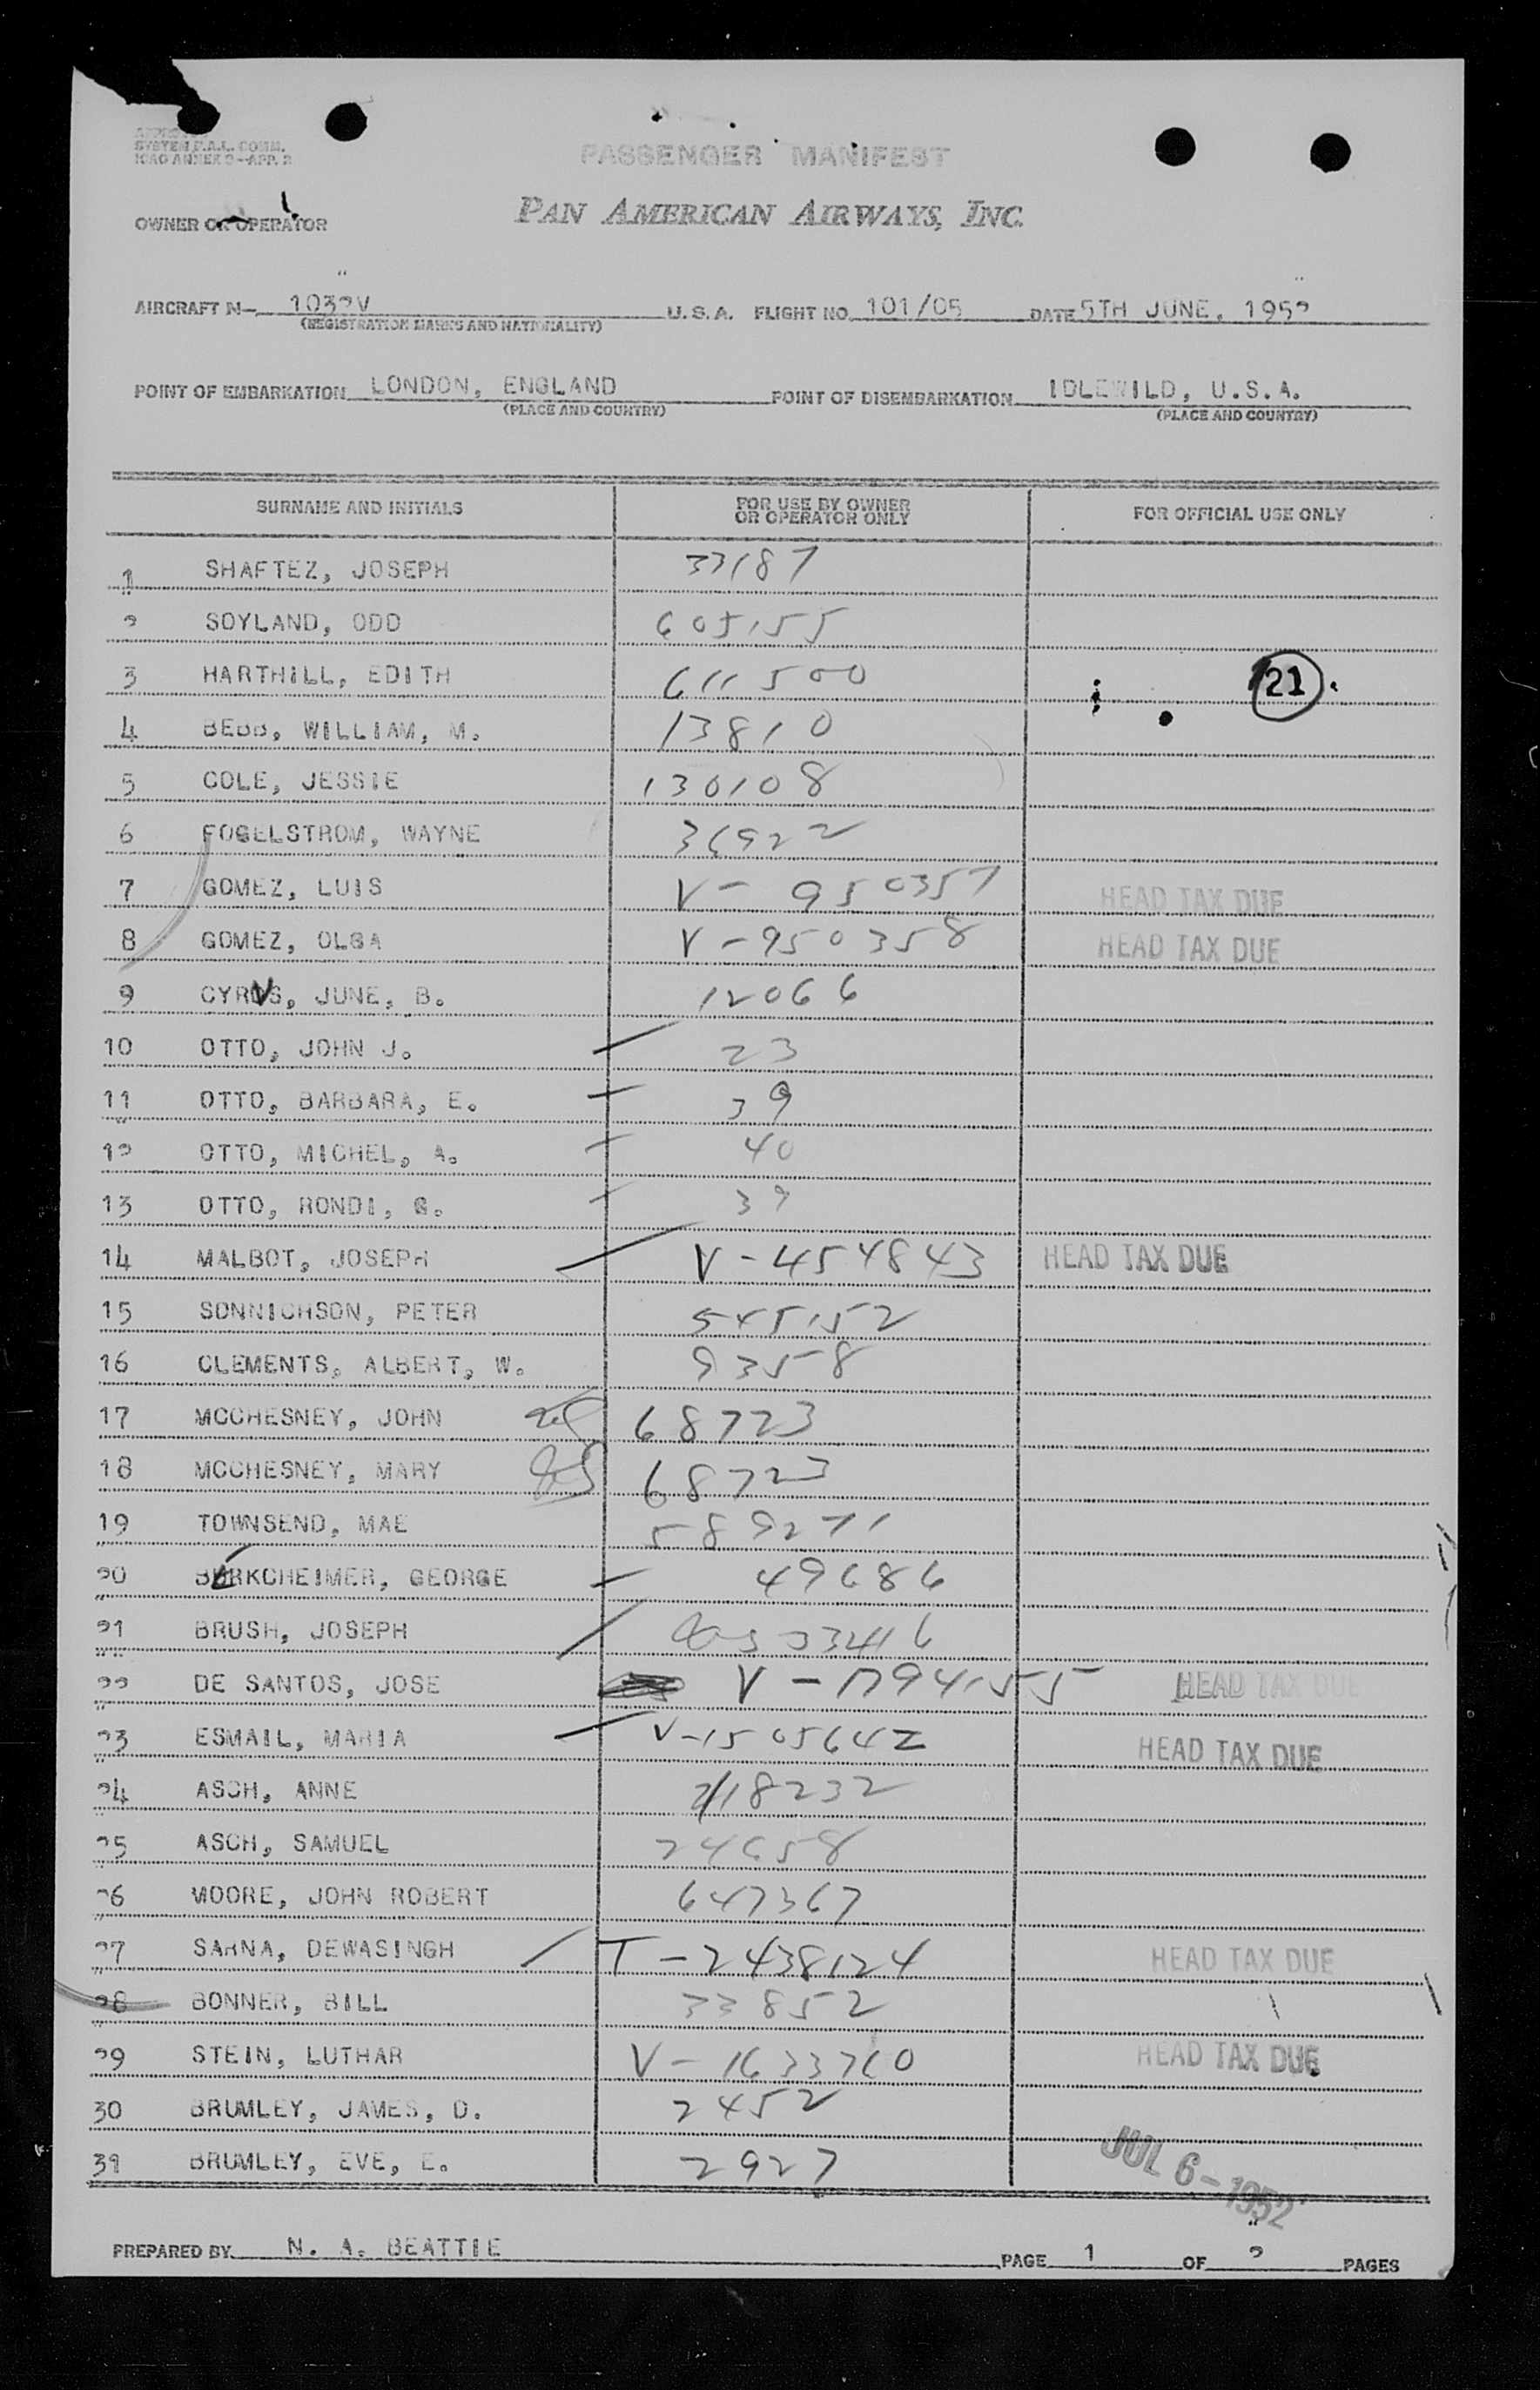 SYSTEM P.A.L. COMM.
ICAO ANNEX 9-APP. 2
PASSENGER MANIFEST
OWNER OR OPERATOR PAN AMERICAN AIRWAYS, INC.
AIRCRAFT N- 1032V U.S.A. FLIGHT NO. 101/05 DATE 5TH JUNE, 1952
(REGISTRATION MARKS AND NATIONALITY)
POINT OF EMBARKATION LONDON, ENGLAND POINT OF DISEMBARKATION IDLEWILD, U.S.A.
(PLACE AND COUNTRY) (PLACE AND COUNTRY)
SURNAME AND INITIALS FOR USE BY OWNER OR OPERATOR ONLY FOR OFFICIAL USE ONLY
1 SHAFTEZ, JOSEPH 33187
2 SOYLAND, ODD 605155
3 HARTHILL, EDITH 611500 21
4 BEBB, WILLIAM, M. 13810
5 COLE, JESSIE 130108
6 FOGELSTROM, WAYNE 36922
7 GOMEZ, LUIS V-950357 HEAD TAX DUE
8 GOMEZ, OLGA V-950358 HEAD TAX DUE
9 JUNE, B. 12066
10 OTTO, JOHN J. 23
11 OTTO, BARBARA, E. 39
12 OTTO, MICHEL, A. 40
13 OTTO, RONDI, G. 39
14 MALBOT, JOSEPH V-454843 HEAD TAX DUE
15 SONNICHSON, PETER 545152
16 CLEMENTS, ALBERT, W. 9358
17 MCCHESNEY, JOHN 68723
18 MCCHESNEY, MARY 68723
19 TOWNSEND, MAE 589271
20 BERKCHEIMER, GEORGE 49686
21 BRUSH, JOSEPH 33416
22 DE SANTOS, JOSE V-1794155 HEAD TAX DUE
23 ESMAIL, MARIA V-1505642 HEAD TAX DUE
24 ASCH, ANNE 218232
25 ASCH, SAMUEL 24658
26 MOORE, JOHN ROBERT 647367
27 SARNA, DEWASINGH T-2438124 HEAD TAX DUE
28 BONNER, BILL 33852
29 STEIN, LUTHAR V-1633760 HEAD TAX DUE
30 BRUMLEY, JAMES, D. 2452
31 BRUMLEY, EVE, E. 2927
JUL 6-1952
PREPARED BY N. A. BEATTIE PAGE 1 OF 2 PAGES